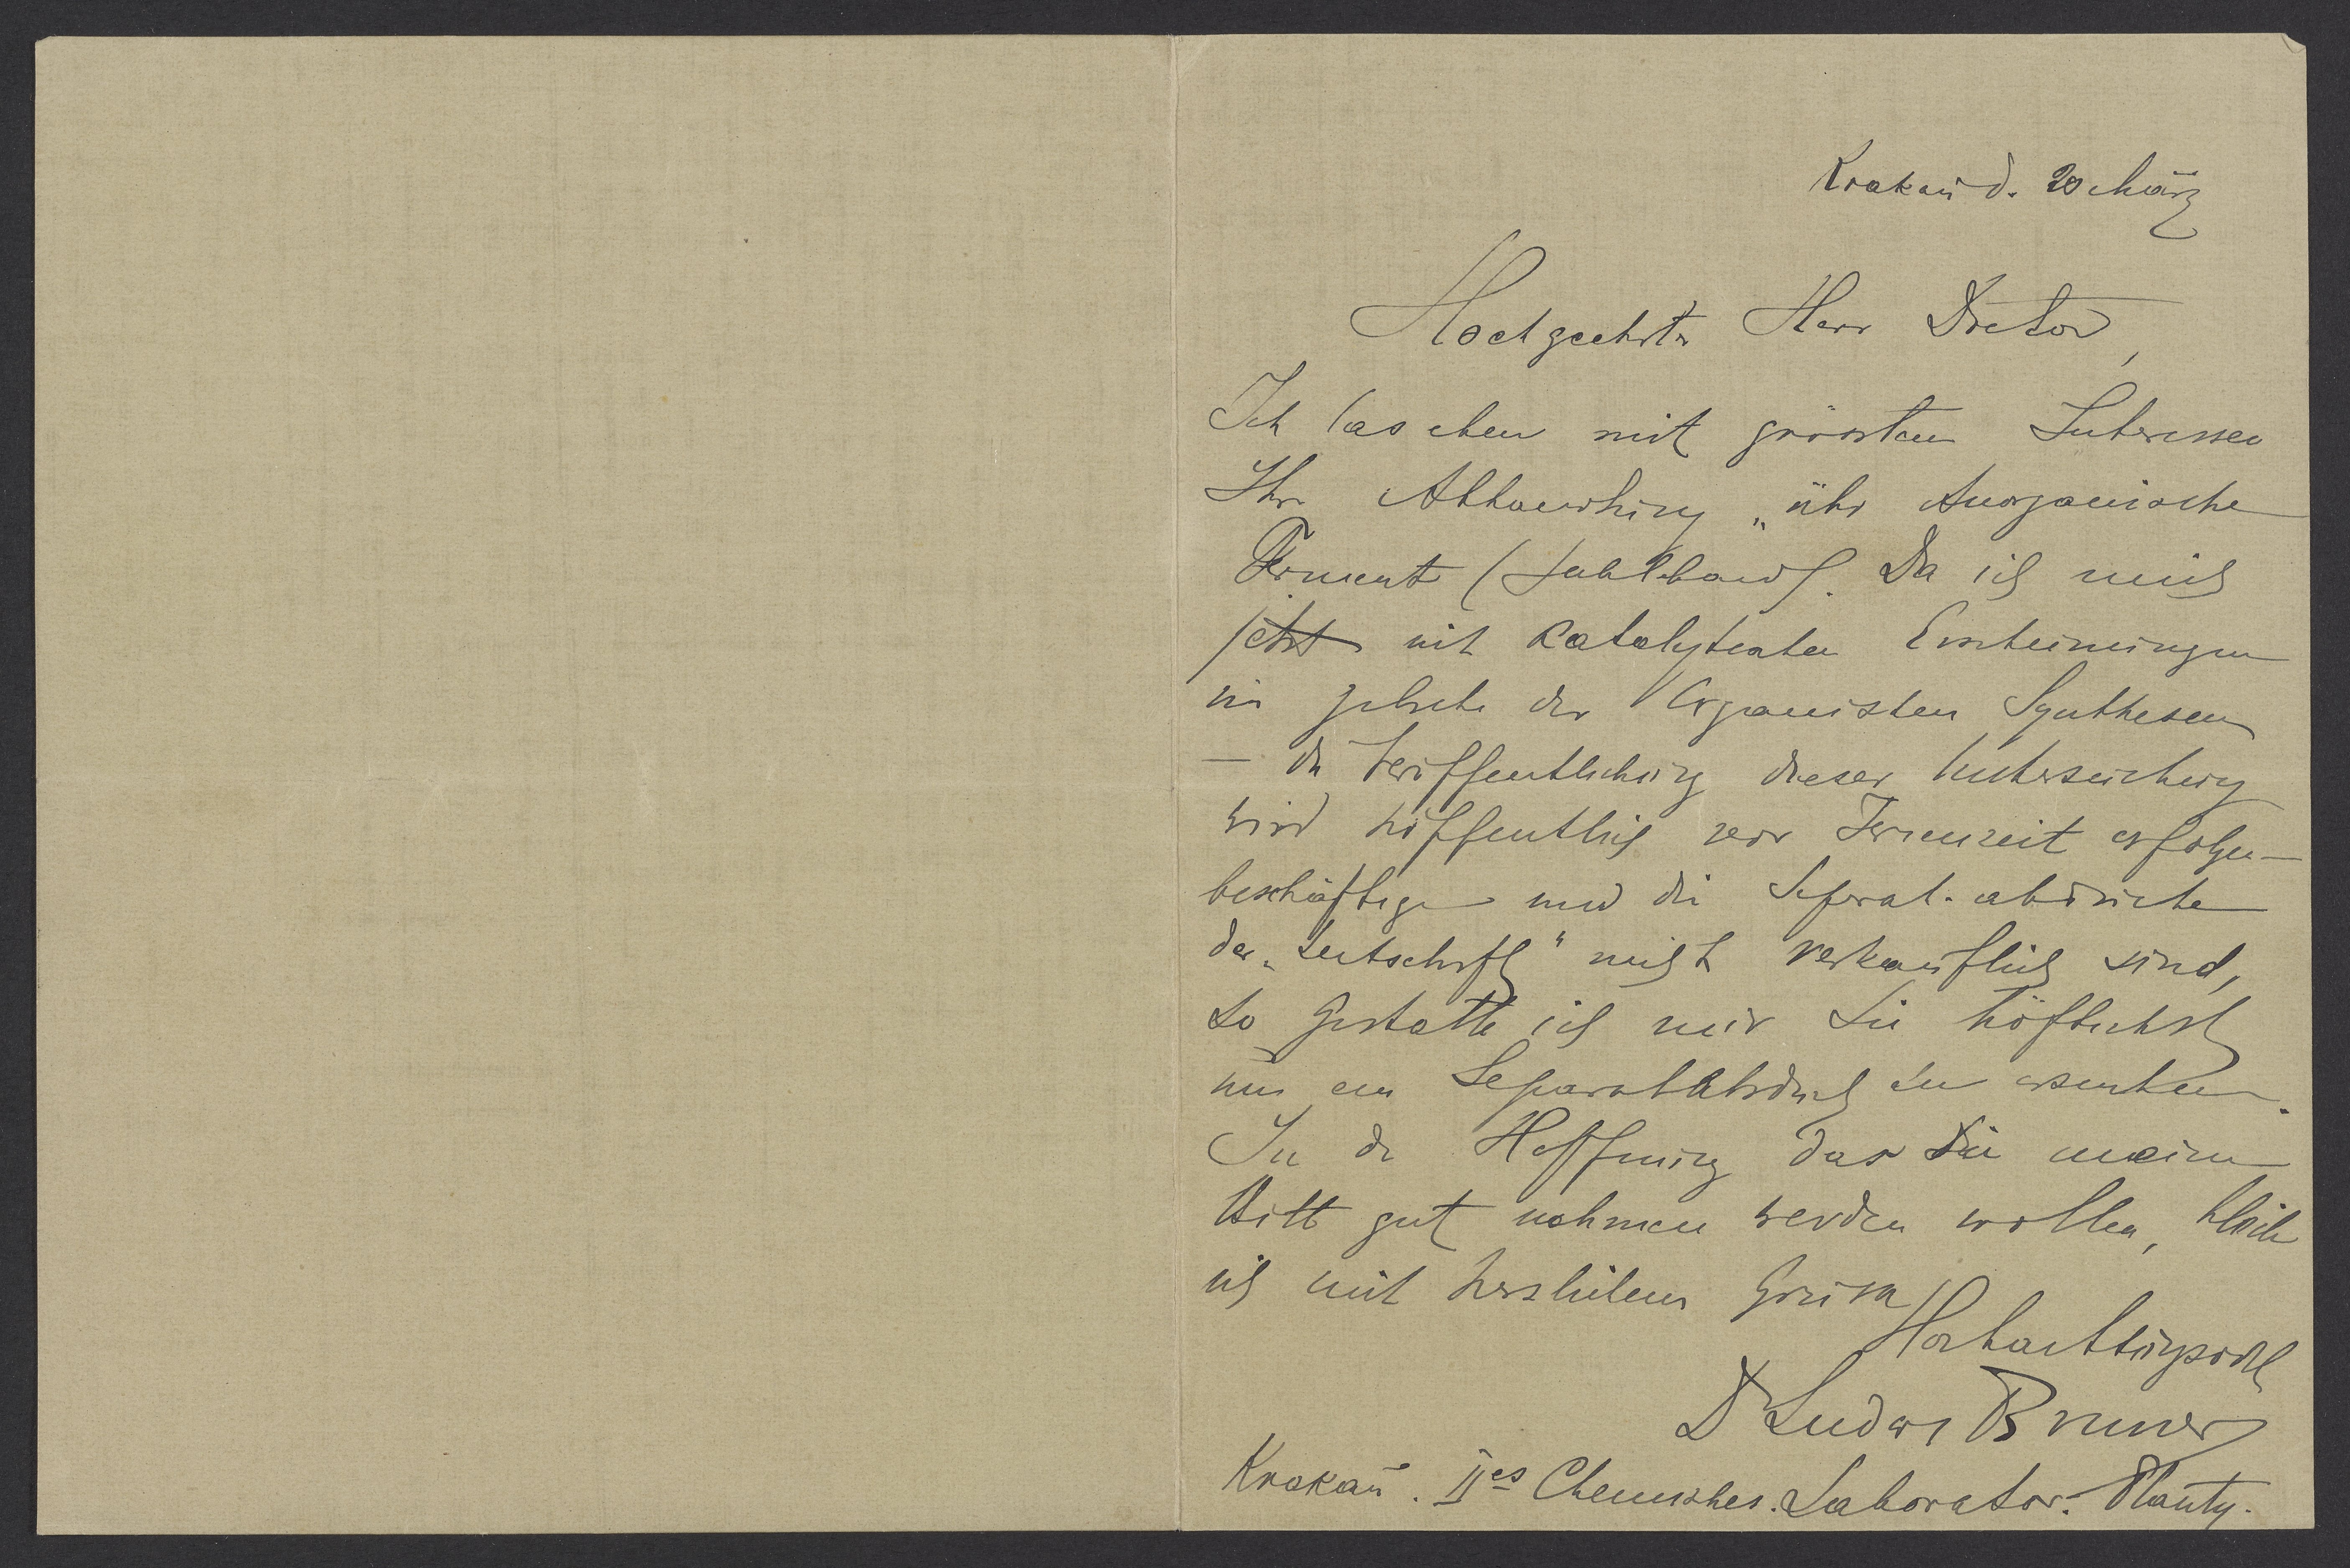 Krakau d. 20 März
Hochgeehrter Herr Doctor,
Ich las eben mit grössten Interessen
Ihre Abhandlung „über Anorganische
Fermente Da ich mich
jetzt mit katalytischen Erscheinungen
im gebiete der Organischen Synthesen
— die Veröffentlichung dieser Untersuchung
wird hoffentlich vor Ferienzeit erfolgen —
beschäftige und die Separat-abdrücke
der „Zeitschrift" nicht verkauflich sind,
so gestatte ich mir Sie höflichst
um ein Separatabdruck zu ersuchen.
In der Hoffnung das Sie meine
Bitte gut nehmen werden wollen, bleibe
ich mit herzlichem Grusse
Hochachtungsvoll
Dr Ludwig Bruner
Krakau. II es Chemisches. Laborator. Planty.